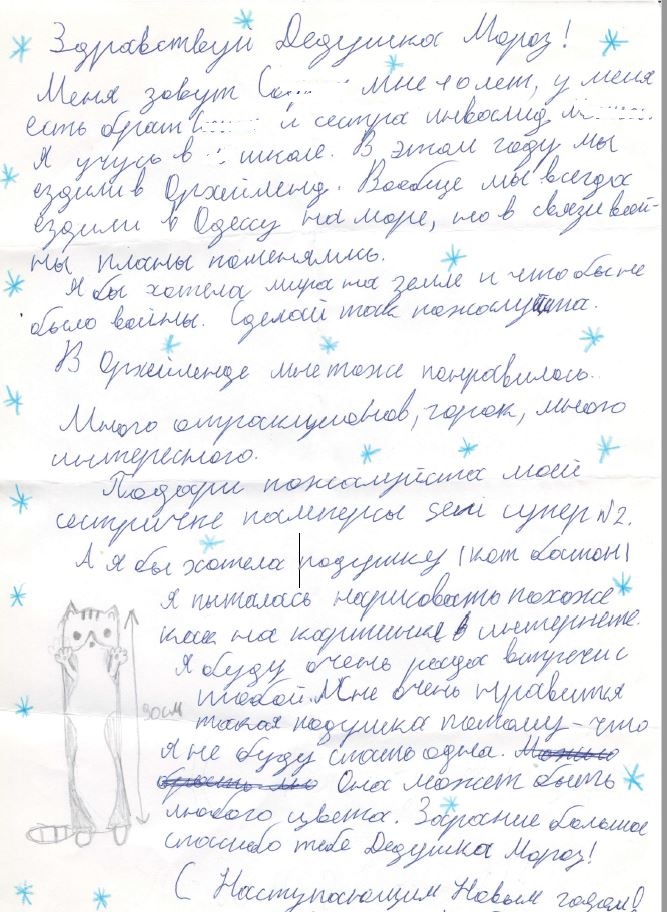 Здравствуй Дедушка Мороз!
Меня зовут С мне 10 лет, у меня
есть брат и сестра инвалид
Я учусь в школе. В этом году мы
ездили в Орхейленд. Вообще мы всегда
ездили в Одессу на море, но в связи вой-
ны планы поменялись.
Я бы хотела мира на земле и что бы не
было войны. Сделай так пожалуйста.
В Орхейленде мне тоже понравилось.
Много атракционов, горок, много
интересного.
Подари пожалуйста моей
сестричке памперсы seni супер N2.
А я бы хотела подушку (кот батон)
я пыталась нарисовать похоже
как на картинке в интернете.
Я буду очень рада встречи с
тобой. Мне очень нравится
30см
такая подушка потому-что
я не буду спать одна.
Она может быть
любого цвета. Зарание большое
спасибо тебе Дедушка Мороз!
С Наступающим Новым годом!